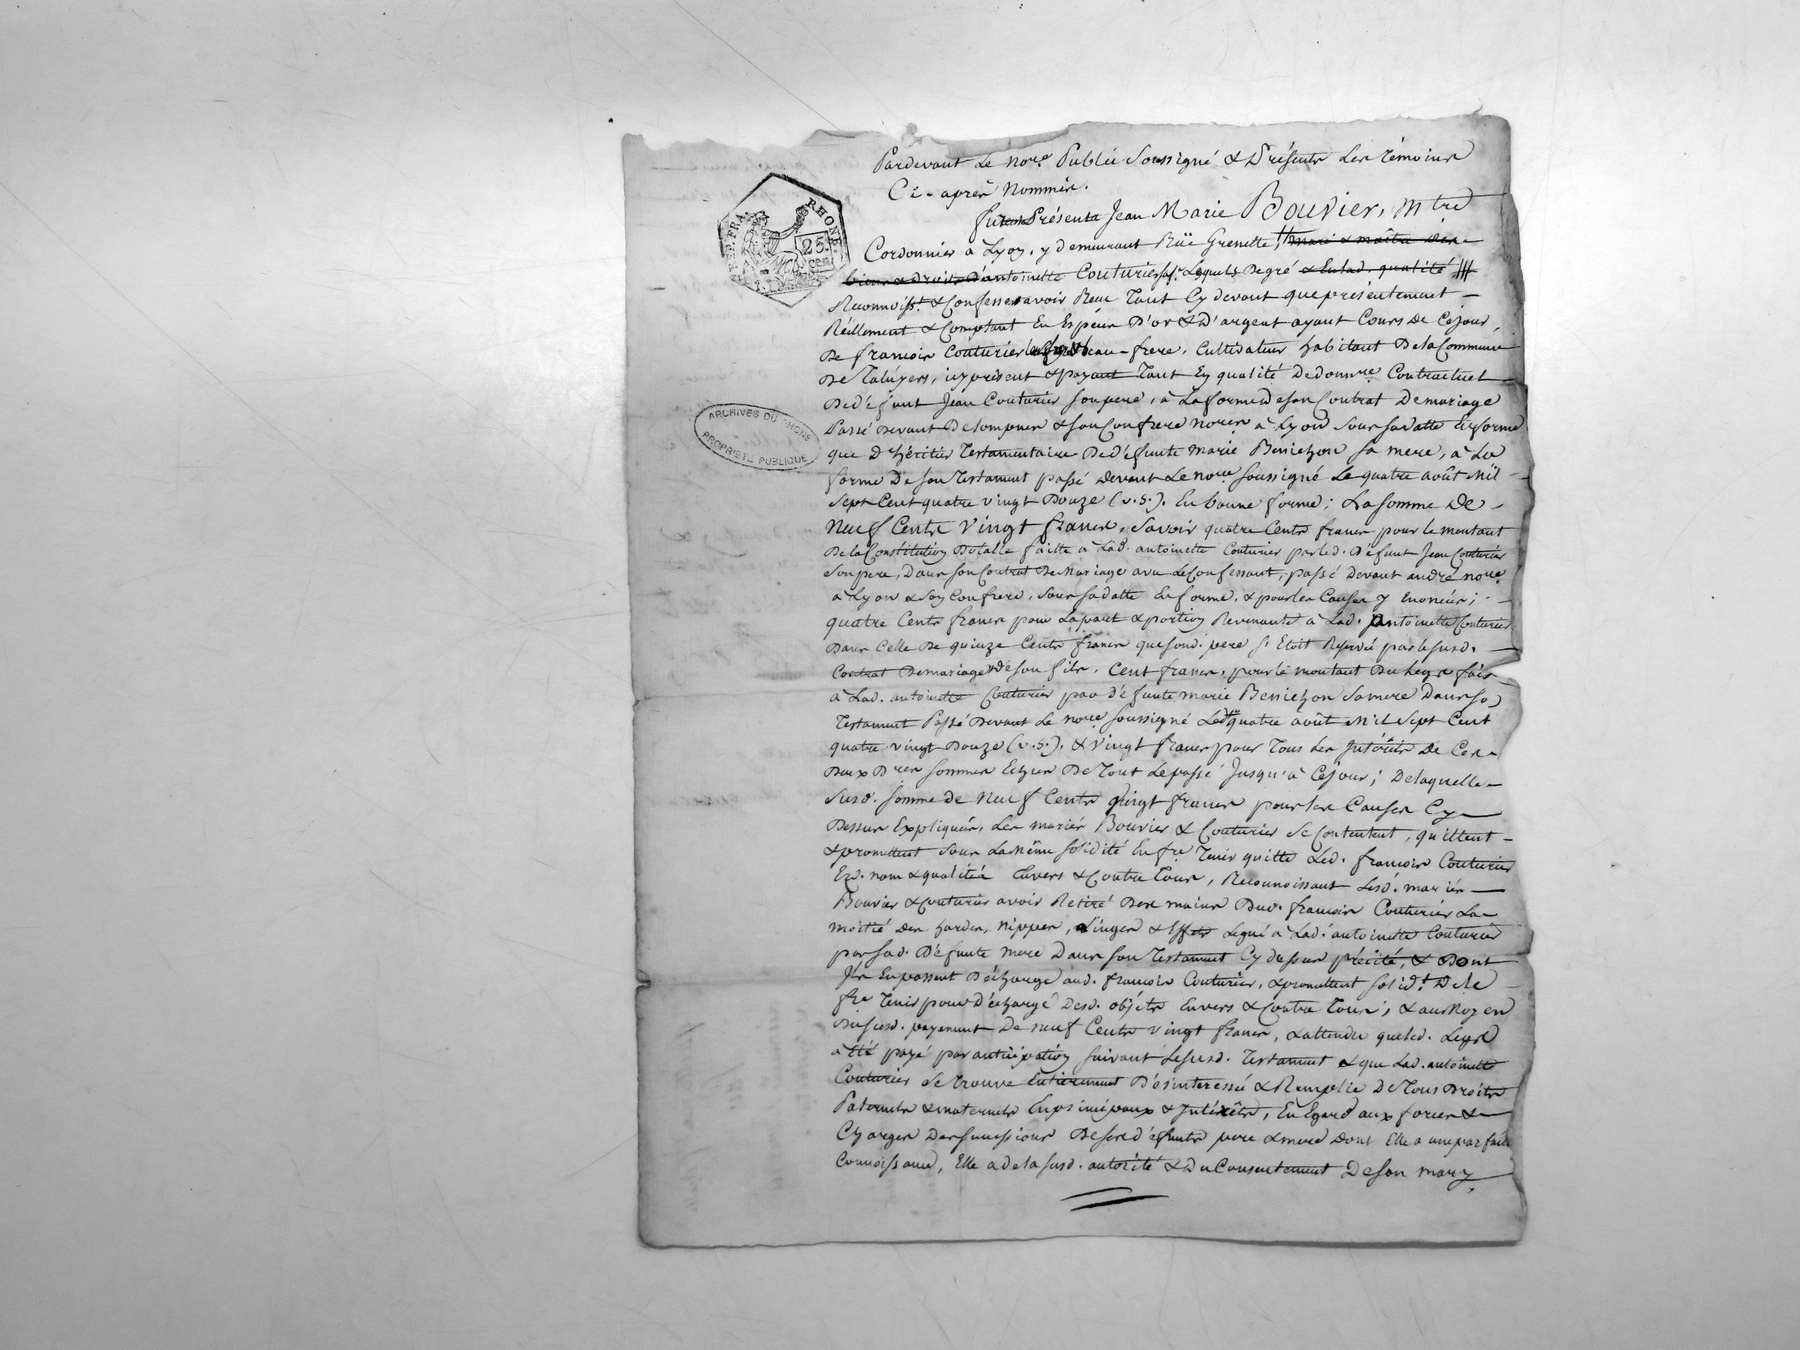 Pardevant Le nore. Public Soussigné & Présents Les témoins
Ci-après Nommés.
furent Présents Jean Marie Bouvier, Mtre
Cordonnier à Lyon, y demeurant Rüe Grenette, mari & maître des
biens & droits d'antoinette Couturier sa fe. Lesquels De gré & en lad. qualité
Reconnoisst. & Confessent avoir Reçu Tant Cy devant que présentement
Réellement & Comptant En Espèces D'or & D'argent ayant Cours De Cejour,
De françois Couturier beau-frere, Cultivateur habitant De la Commune
De Taluyers, icy présent & payant Tant En qualité De donnre. Contractuel
De Défunt Jean Couturier son pere, à La forme De son Contrat De mariage
Passé Devant Delompnes & son Confrere nores. à Lyon Sous sa datte En forme
que D'héritier Testamentaire De Défunte Marie Benichon sa mere, à La
forme De son Testament passé devant Le nore. Soussigné Le quatre août Mil
Sept Cent quatre vingt Douze (v.s.). En bonne forme; La somme De
Neuf Cents Vingt francs, Savoir quatre Cents francs pour le montant
De la Constitution Dotalle faitte à Lad. antoinette Couturier par led. Défunt Jean Couturier
Son pere, Dans son Contrat De Mariage avec Le Confessant, passé Devant andré nore.
à Lyon & Son Confrere, sous sa datte En forme, & pour les Causes y Enoncées;
quatre Cents francs pour La part & portion Revenante à Lad. antoinette Couturier
Dans Celle De quinze Cents francs que sond. pere s'Etoit Réservé par le susd.
Contrat De mariage De son fils, Cent francs, pour le montant Du Legs fait
à Lad. antoinette Couturier par défunte marie Benichon sa mere Dans son
Testament Passé Devant Le nore. soussigné Led. quatre août Mil Sept Cent
quatre vingt Douze (v.s.). & Vingt francs pour Tous Les Intérêts De Ces
Deux Dres sommes Echues De Tout Le passé Jusqu'à Cejour; De laquelle
Susd. somme De Neuf Cents Vingt francs pour les Causes Cy
Dessus Expliquées, Les mariés Bouvier & Couturier Se Contentent, quittent
& promettent Sous La même solidité En fre. Tenir quitte Led. françois Couturier
Esd. nom & qualités Envers & Contre Tous, Reconnoissant Lesd. mariés
Bouvier & Couturier avoir Retiré Des mains Dud. françois Couturier La
moitié Des hardes, Nippes, Linges & Effets Légué à Lad. antoinette Couturier
par sad. Défunte mere Dans son Testament Cy dessus précité, & Dont
Ils En passent Décharge aud. françois Couturier, & promettent solidt. De le
fre Tenir pour Déchargé Desd. objets Envers & Contre Tous; & au Moyen
Du susd. payement De neuf Cents Vingt francs, & attendu que led. Legs
a Eté payé par anticipation suivant Le susd. Testament & que Lad. antoinette
Couturier Se trouve Entierement Désinteressée & Remplie De Tous Droits
Paternels & maternels En principaux & Intérêts, En Egard aux forces &
Charges Des successions De sesd. défunts pere & mere dont Elle a une parfaite
Connoissance, Elle a de la susd. autorité & Du Consentement De son mary
REP. FRA.
RHONE
25
CEN
ARCHIVES DU RHONE
PROPRIETE PUBLIQUE